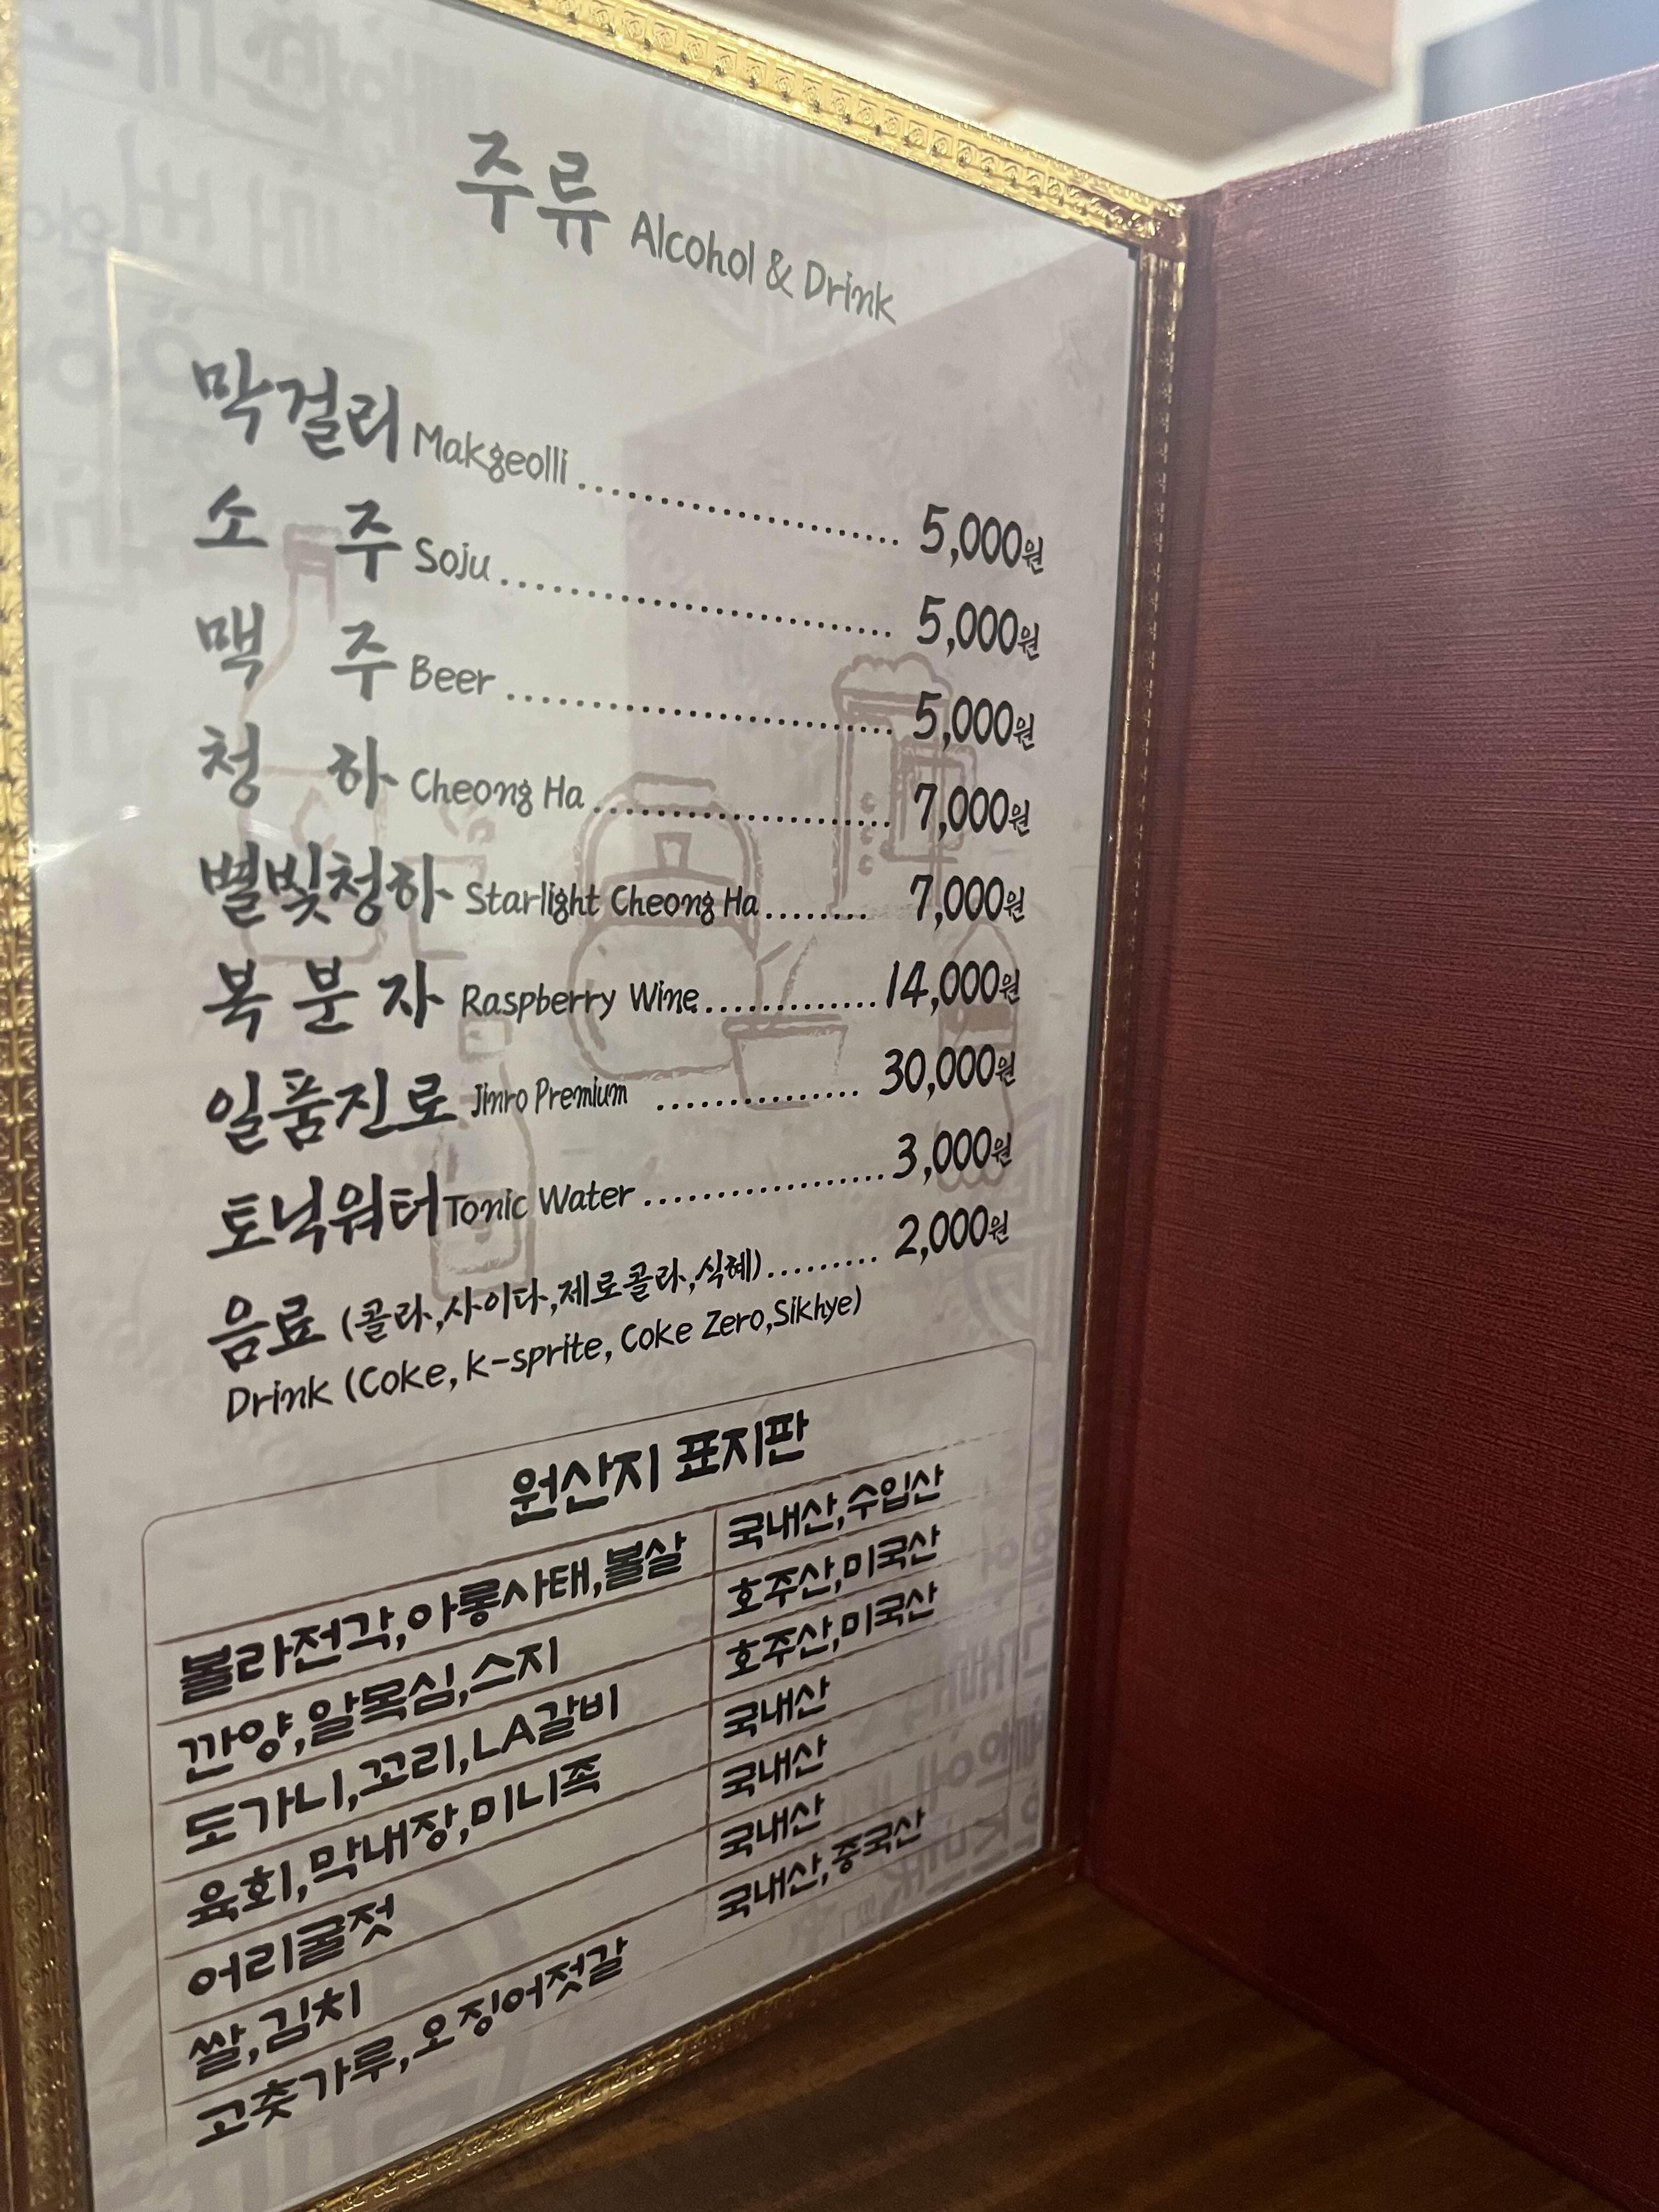 주류 Alcohol & Drink
막걸리 Makgeolli 5,000원
소 주 Soju 5,000원
맥 주 Beer 5,000원
청 하 Cheong Ha 7,000원
별빛청하 Starlight Cheong Ha 7,000원
복 분 자 Raspberry Wine 14,000원
일품진로 Jinro Premium 30,000원
토닉워터 Tonic Water 3,000원
음료 (콜라,사이다,제로콜라,식혜) 2,000원
Drink (Coke, k-sprite, Coke Zero,Sikhye)
원산지 표지판
볼라전각,아롱사태,볼살 국내산,수입산
깐양,알목심,스지 호주산,미국산
도가니,꼬리,LA갈비 호주산,미국산
육회,막내장,미니족 국내산
어리굴젓 국내산
쌀,김치 국내산
고춧가루,오징어젓갈 국내산,중국산